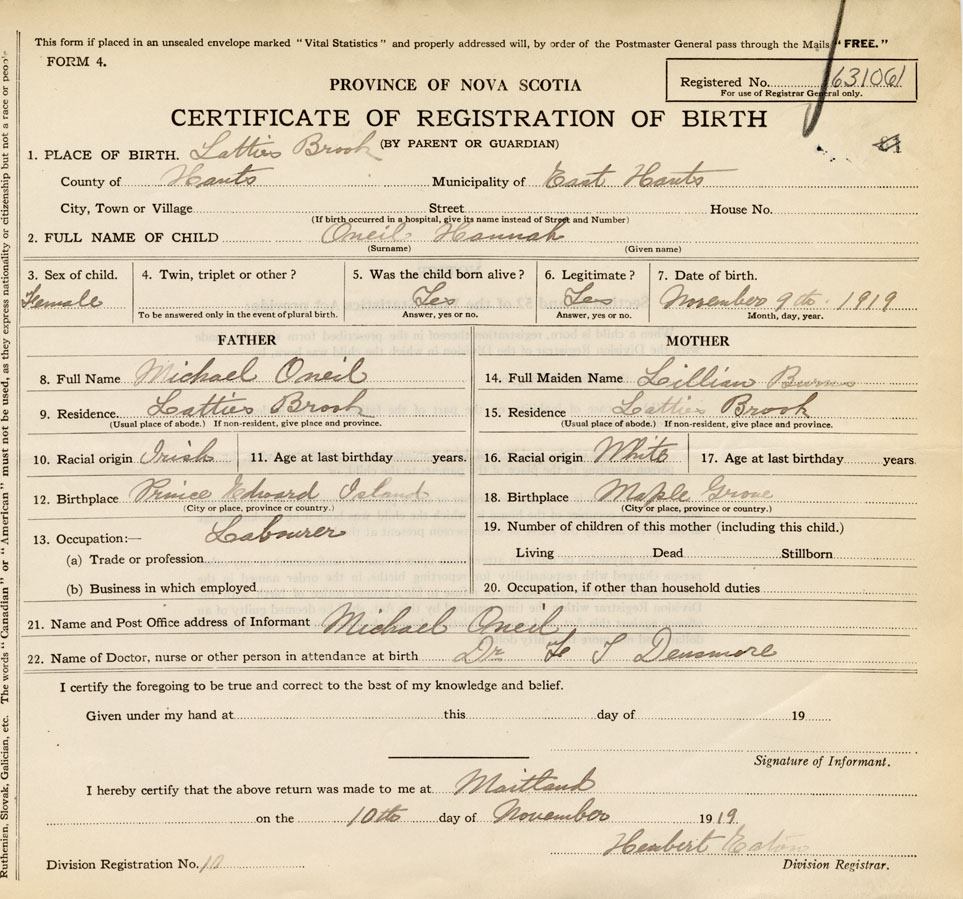 This form if placed in an unsealed envelope marked "Vital Statistics" and properly addressed will, by order of the Postmaster General pass through the Mails "FREE."
FORM 4.
Registered No. 631061
For use of Registrar General only.
PROVINCE OF NOVA SCOTIA
CERTIFICATE OF REGISTRATION OF BIRTH
(BY PARENT OR GUARDIAN)
1. PLACE OF BIRTH. Latties Brook
County of Hants Municipality of East Hants
City, Town or Village Street House No.
(If birth occurred in a hospital, give its name instead of Street and Number)
2. FULL NAME OF CHILD Oneil Hannah
(Surname) (Given name)
3. Sex of child. 4. Twin, triplet or other? 5. Was the child born alive? 6. Legitimate? 7. Date of birth.
Female Yes Yes November 9th 1919
To be answered only in the event of plural birth. Answer, yes or no. Answer, yes or no. Month, day, year.
FATHER
8. Full Name Michael Oneil
9. Residence. Latties Brook
(Usual place of abode.) If non-resident, give place and province.
10. Racial origin Irish 11. Age at last birthday years.
12. Birthplace Prince Edward Island
(City or place, province or country.)
13. Occupation:— Labourer
(a) Trade or profession
(b) Business in which employed
MOTHER
14. Full Maiden Name Lillian Burns
15. Residence Latties Brook
(Usual place of abode.) If non-resident, give place and province.
16. Racial origin White 17. Age at last birthday years
18. Birthplace Maple Grove
(City or place, province or country.)
19. Number of children of this mother (including this child.)
Living Dead Stillborn
20. Occupation, if other than household duties
21. Name and Post Office address of Informant Michael Oneil
22. Name of Doctor, nurse or other person in attendance at birth Dr F S Densmore
I certify the foregoing to be true and correct to the best of my knowledge and belief.
Given under my hand at this day of 19
Signature of Informant.
I hereby certify that the above return was made to me at Maitland
on the 10th day of November 1919
Herbert Eaton
Division Registration No. 10 Division Registrar.
Ruthenian, Slovak, Galician, etc. The words "Canadian" or "American" must not be used, as they express nationality or citizenship but not a race or people